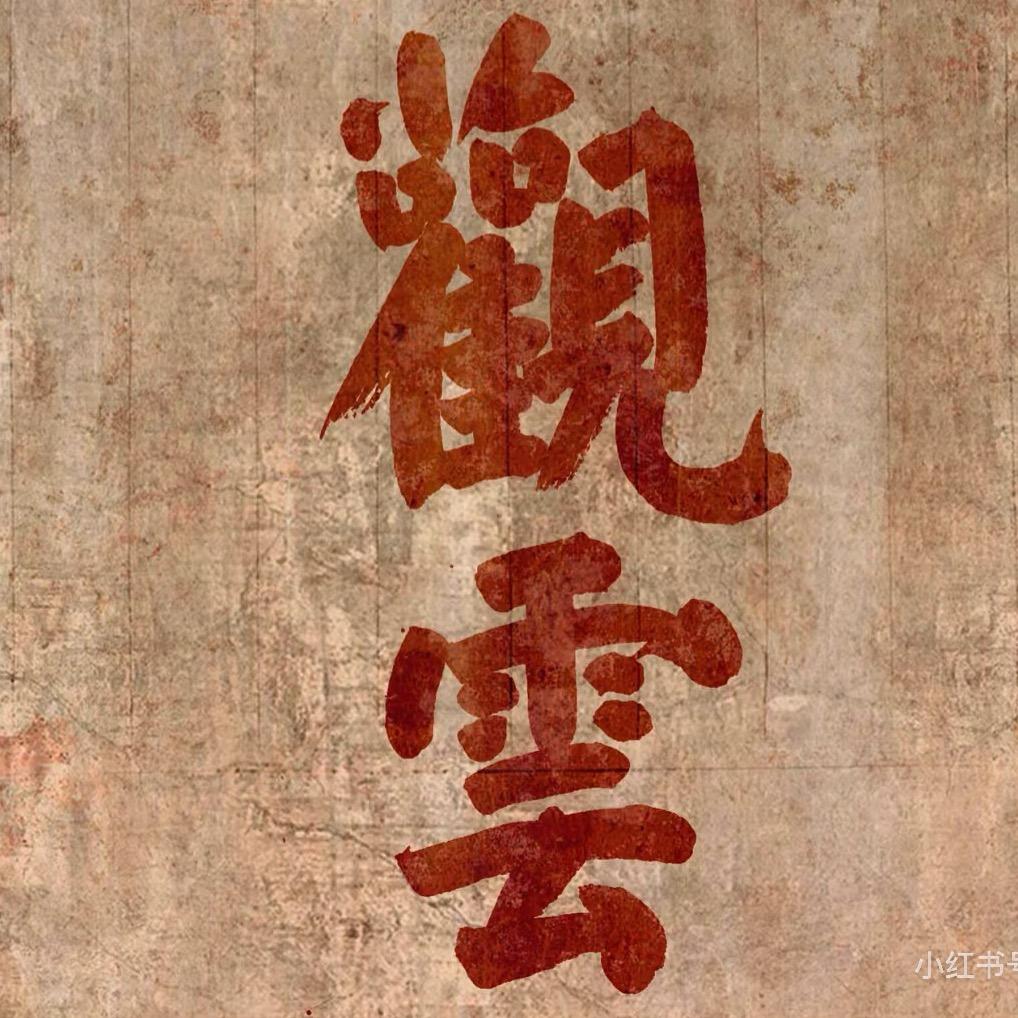 觀雲
小红书号